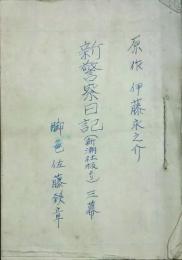 原作 伊藤永之介
新警察日記（新潮社版ヨリ）三幕
脚色 佐藤鉄章